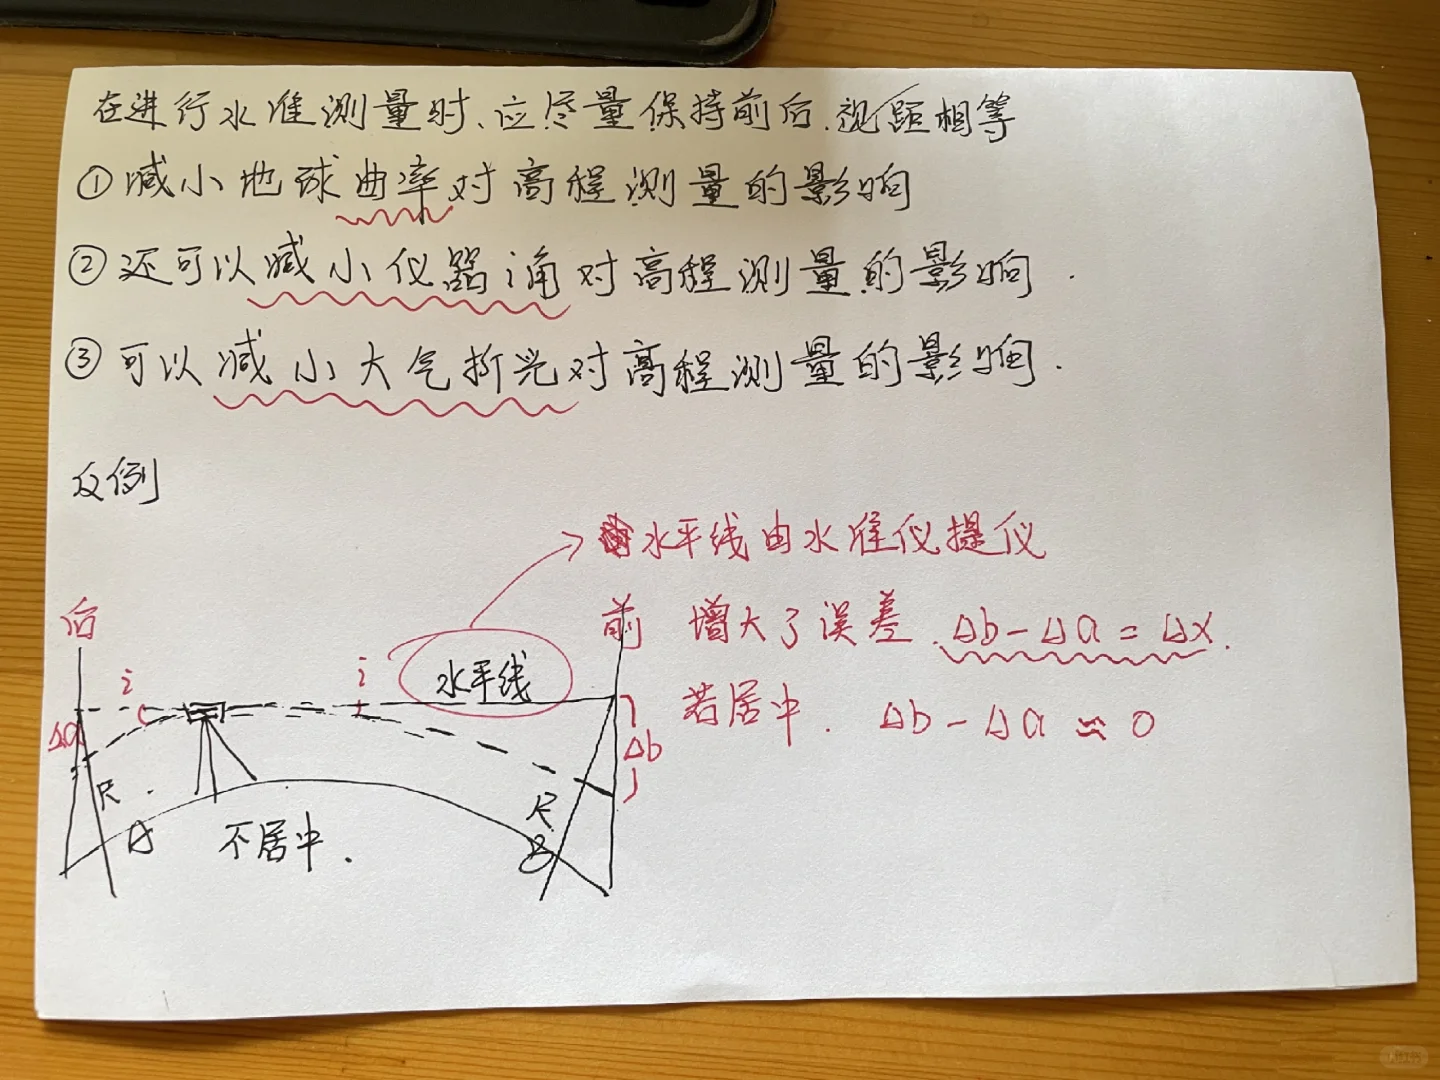 在进行水准测量时、应尽量保持前后视距相等
①减小地球曲率对高程测量的影响
②还可以减小仪器i角对高程测量的影响.
③可以减小大气折光对高程测量的影响.
反例
水平线由水准仪提仪
后
前 增大了误差.Δb-Δa=Δx.
i
i
水平线
若居中. Δb-Δa≈0
Δa
Δb
R
R
A
B
不居中.
小红书